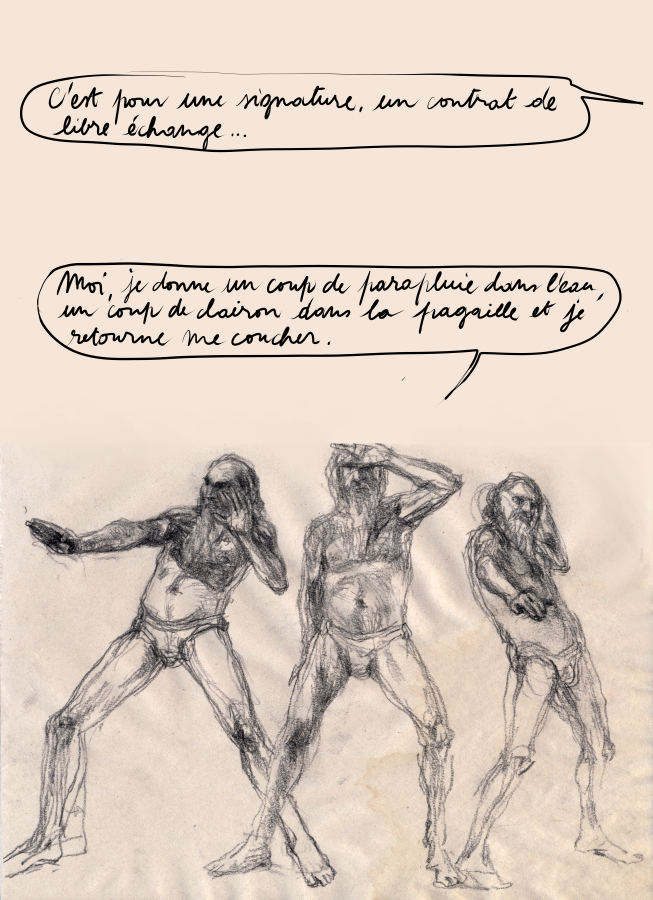 C'est pour une signature, un contrat de
libre échange...
Moi, je donne un coup de parapluie dans l'eau,
un coup de clairon dans la pagaille et je
retourne me coucher.